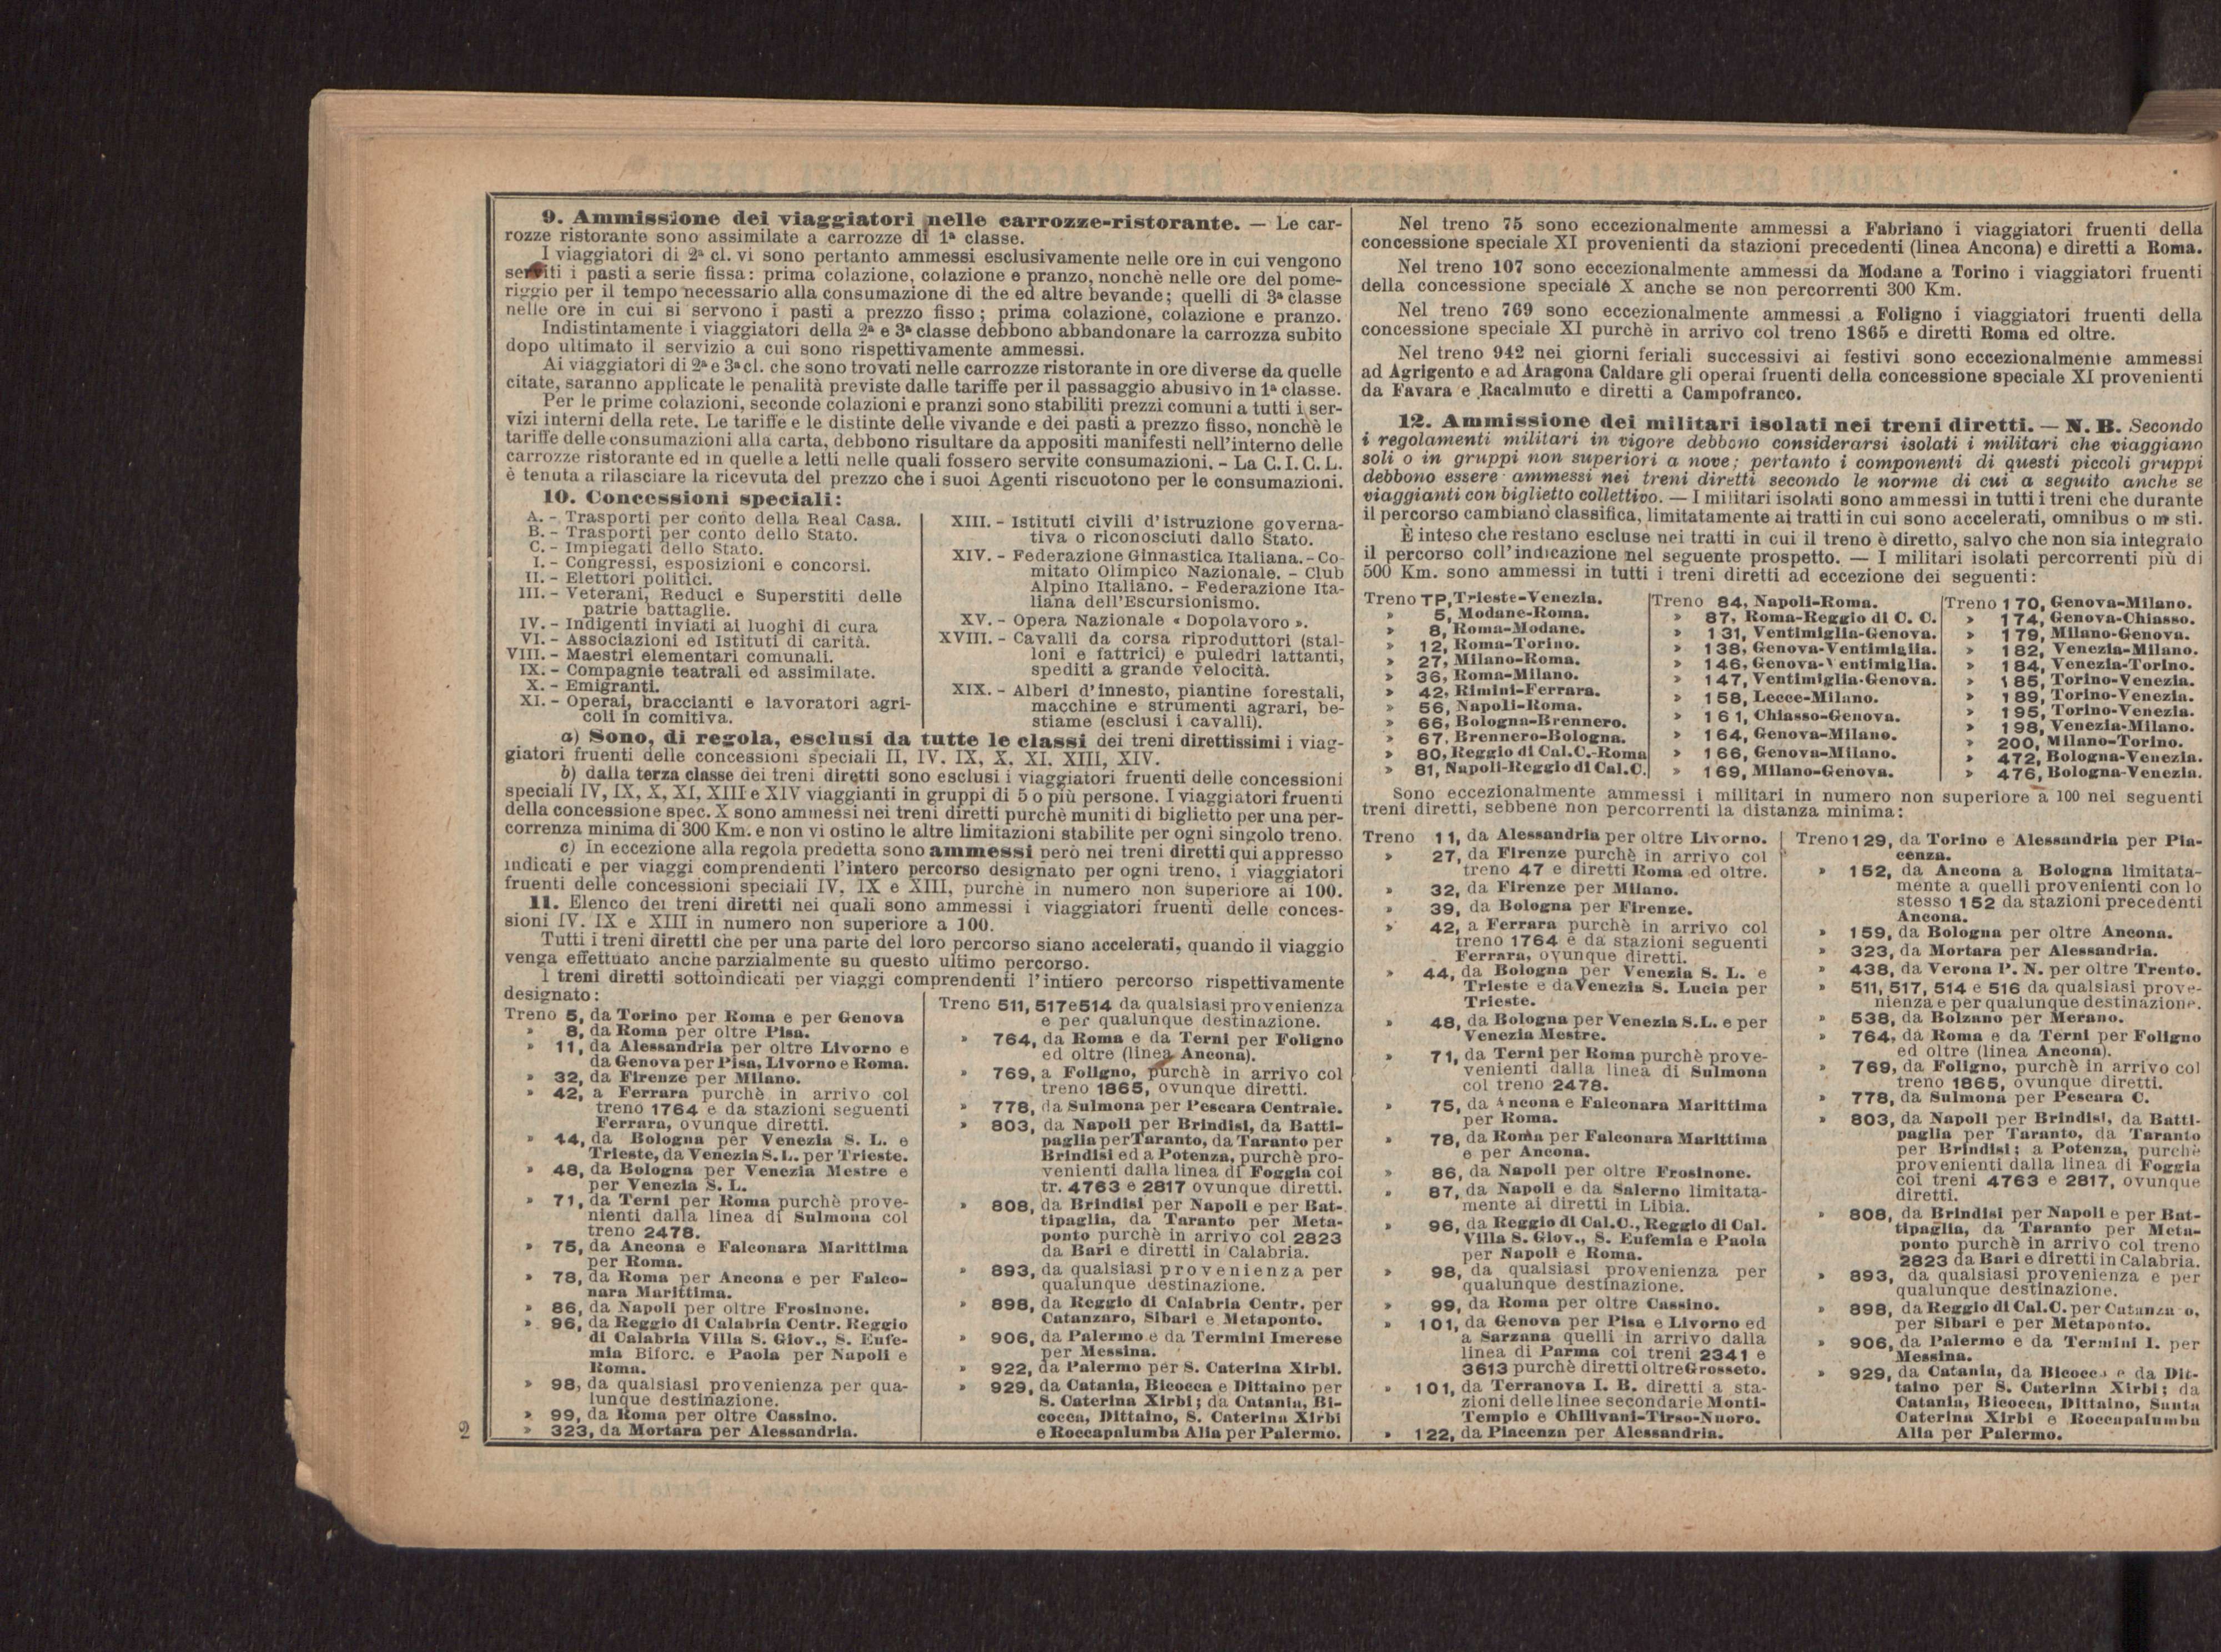 9. Ammissione dei viaggiatori nelle carrozze-ristorante. — Le car-
rozze ristorante sono assimilate a carrozze di 1ª classe.
I viaggiatori di 2ª cl. vi sono pertanto ammessi esclusivamente nelle ore in cui vengono
serviti i pasti a serie fissa: prima colazione, colazione e pranzo, nonchè nelle ore del pome-
riggio per il tempo necessario alla consumazione di the ed altre bevande; quelli di 3ª classe
nelle ore in cui si servono i pasti a prezzo fisso; prima colazione, colazione e pranzo.
Indistintamente i viaggiatori della 2ª e 3ª classe debbono abbandonare la carrozza subito
dopo ultimato il servizio a cui sono rispettivamente ammessi.
Ai viaggiatori di 2ª e 3ª cl. che sono trovati nelle carrozze ristorante in ore diverse da quelle
citate, saranno applicate le penalità previste dalle tariffe per il passaggio abusivo in 1ª classe.
Per le prime colazioni, seconde colazioni e pranzi sono stabiliti prezzi comuni a tutti i ser-
vizi interni della rete. Le tariffe e le distinte delle vivande e dei pasti a prezzo fisso, nonchè le
tariffe delle consumazioni alla carta, debbono risultare da appositi manifesti nell'interno delle
carrozze ristorante ed in quelle a letti nelle quali fossero servite consumazioni. - La C. I. C. L.
è tenuta a rilasciare la ricevuta del prezzo che i suoi Agenti riscuotono per le consumazioni.
10. Concessioni speciali:
A. - Trasporti per conto della Real Casa.
B. - Trasporti per conto dello Stato.
C. - Impiegati dello Stato.
I. - Congressi, esposizioni e concorsi.
II. - Elettori politici.
III. - Veterani, Reduci e Superstiti delle
patrie battaglie.
IV. - Indigenti inviati ai luoghi di cura
VI. - Associazioni ed Istituti di carità.
VIII. - Maestri elementari comunali.
IX. - Compagnie teatrali ed assimilate.
X. - Emigranti.
XI. - Operai, braccianti e lavoratori agri-
coli in comitiva.
XIII. - Istituti civili d'istruzione governa-
tiva o riconosciuti dallo Stato.
XIV. - Federazione Ginnastica Italiana. - Co-
mitato Olimpico Nazionale. - Club
Alpino Italiano. - Federazione Ita-
liana dell'Escursionismo.
XV. - Opera Nazionale « Dopolavoro ».
XVIII. - Cavalli da corsa riproduttori (stal-
loni e fattrici) e puledri lattanti,
spediti a grande velocità.
XIX. - Alberi d'innesto, piantine forestali,
macchine e strumenti agrari, be-
stiame (esclusi i cavalli).
a) Sono, di regola, esclusi da tutte le classi dei treni direttissimi i viag-
giatori fruenti delle concessioni speciali II, IV. IX, X, XI, XIII, XIV.
b) dalla terza classe dei treni diretti sono esclusi i viaggiatori fruenti delle concessioni
speciali IV, IX, X, XI, XIII e XIV viaggianti in gruppi di 5 o più persone. I viaggiatori fruenti
della concessione spec. X sono ammessi nei treni diretti purchè muniti di biglietto per una per-
correnza minima di 300 Km. e non vi ostino le altre limitazioni stabilite per ogni singolo treno.
c) In eccezione alla regola predetta sono ammessi però nei treni diretti qui appresso
indicati e per viaggi comprendenti l'intero percorso designato per ogni treno, i viaggiatori
fruenti delle concessioni speciali IV, IX e XIII, purchè in numero non superiore ai 100.
11. Elenco dei treni diretti nei quali sono ammessi i viaggiatori fruenti delle conces-
sioni IV. IX e XIII in numero non superiore a 100.
Tutti i treni diretti che per una parte del loro percorso siano accelerati, quando il viaggio
venga effettuato anche parzialmente su questo ultimo percorso.
I treni diretti sottoindicati per viaggi comprendenti l'intiero percorso rispettivamente
designato:
Treno 5, da Torino per Roma e per Genova
» 8, da Roma per oltre Pisa.
» 11, da Alessandria per oltre Livorno e
da Genova per Pisa, Livorno e Roma.
» 32, da Firenze per Milano.
» 42, a Ferrara purchè in arrivo col
treno 1764 e da stazioni seguenti
Ferrara, ovunque diretti.
» 44, da Bologna per Venezia S. L. e
Trieste, da Venezia S. L. per Trieste.
» 48, da Bologna per Venezia Mestre e
per Venezia S. L.
» 71, da Terni per Roma purchè prove-
nienti dalla linea di Sulmona col
treno 2478.
» 75, da Ancona e Falconara Marittima
per Roma.
» 78, da Roma per Ancona e per Falco-
nara Marittima.
» 86, da Napoli per oltre Frosinone.
» 96, da Reggio di Calabria Centr. Reggio
di Calabria Villa S. Giov., S. Eufe-
mia Biforc. e Paola per Napoli e
Roma.
» 98, da qualsiasi provenienza per qua-
lunque destinazione.
» 99, da Roma per oltre Cassino.
» 323, da Mortara per Alessandria.
Treno 511, 517 e 514 da qualsiasi provenienza
e per qualunque destinazione.
» 764, da Roma e da Terni per Foligno
ed oltre (linea Ancona).
» 769, a Foligno, purchè in arrivo col
treno 1865, ovunque diretti.
» 778, da Sulmona per Pescara Centrale.
» 803, da Napoli per Brindisi, da Batti-
paglia per Taranto, da Taranto per
Brindisi ed a Potenza, purchè pro-
venienti dalla linea di Foggia coi
tr. 4763 e 2817 ovunque diretti.
» 808, da Brindisi per Napoli e per Bat-
tipaglia, da Taranto per Meta-
ponto purchè in arrivo col 2823
da Bari e diretti in Calabria.
» 893, da qualsiasi provenienza per
qualunque destinazione.
» 898, da Reggio di Calabria Centr. per
Catanzaro, Sibari e Metaponto.
» 906, da Palermo e da Termini Imerese
per Messina.
» 922, da Palermo per S. Caterina Xirbi.
» 929, da Catania, Bicocca e Dittaino per
S. Caterina Xirbi; da Catania, Bi-
cocca, Dittaino, S. Caterina Xirbi
e Roccapalumba Alia per Palermo.
Nel treno 75 sono eccezionalmente ammessi a Fabriano i viaggiatori fruenti della
concessione speciale XI provenienti da stazioni precedenti (linea Ancona) e diretti a Roma.
Nel treno 107 sono eccezionalmente ammessi da Modane a Torino i viaggiatori fruenti
della concessione speciale X anche se non percorrenti 300 Km.
Nel treno 769 sono eccezionalmente ammessi a Foligno i viaggiatori fruenti della
concessione speciale XI purchè in arrivo col treno 1865 e diretti Roma ed oltre.
Nel treno 942 nei giorni feriali successivi ai festivi sono eccezionalmente ammessi
ad Agrigento e ad Aragona Caldare gli operai fruenti della concessione speciale XI provenienti
da Favara e Racalmuto e diretti a Campofranco.
12. Ammissione dei militari isolati nei treni diretti. — N. B. Secondo
i regolamenti militari in vigore debbono considerarsi isolati i militari che viaggiano
soli o in gruppi non superiori a nove; pertanto i componenti di questi piccoli gruppi
debbono essere ammessi nei treni diretti secondo le norme di cui a seguito anche se
viaggianti con biglietto collettivo. — I militari isolati sono ammessi in tutti i treni che durante
il percorso cambiano classifica, limitatamente ai tratti in cui sono accelerati, omnibus o m sti.
È inteso che restano escluse nei tratti in cui il treno è diretto, salvo che non sia integrato
il percorso coll'indicazione nel seguente prospetto. — I militari isolati percorrenti più di
500 Km. sono ammessi in tutti i treni diretti ad eccezione dei seguenti:
Treno TP, Trieste-Venezia.
» 5, Modane-Roma.
» 8, Roma-Modane.
» 12, Roma-Torino.
» 27, Milano-Roma.
» 36, Roma-Milano.
» 42, Rimini-Ferrara.
» 56, Napoli-Roma.
» 66, Bologna-Brennero.
» 67, Brennero-Bologna.
» 80, Reggio di Cal. C.-Roma
» 81, Napoli-Reggio di Cal. C.
Treno 84, Napoli-Roma.
» 87, Roma-Reggio di C. C.
» 131, Ventimiglia-Genova.
» 138, Genova-Ventimiglia.
» 146, Genova-Ventimiglia.
» 147, Ventimiglia-Genova.
» 158, Lecce-Milano.
» 161, Chiasso-Genova.
» 164, Genova-Milano.
» 166, Genova-Milano.
» 169, Milano-Genova.
Treno 170, Genova-Milano.
» 174, Genova-Chiasso.
» 179, Milano-Genova.
» 182, Venezia-Milano.
» 184, Venezia-Torino.
» 185, Torino-Venezia.
» 189, Torino-Venezia.
» 195, Torino-Venezia.
» 198, Venezia-Milano.
» 200, Milano-Torino.
» 472, Bologna-Venezia.
» 476, Bologna-Venezia.
Sono eccezionalmente ammessi i militari in numero non superiore a 100 nei seguenti
treni diretti, sebbene non percorrenti la distanza minima:
Treno 11, da Alessandria per oltre Livorno.
» 27, da Firenze purchè in arrivo col
treno 47 e diretti Roma ed oltre.
» 32, da Firenze per Milano.
» 39, da Bologna per Firenze.
» 42, a Ferrara purchè in arrivo col
treno 1764 e da stazioni seguenti
Ferrara, ovunque diretti.
» 44, da Bologna per Venezia S. L. e
Trieste e da Venezia S. Lucia per
Trieste.
» 48, da Bologna per Venezia S. L. e per
Venezia Mestre.
» 71, da Terni per Roma purchè prove-
nienti dalla linea di Sulmona
col treno 2478.
» 75, da Ancona e Falconara Marittima
per Roma.
» 78, da Roma per Falconara Marittima
e per Ancona.
» 86, da Napoli per oltre Frosinone.
» 87, da Napoli e da Salerno limitata-
mente ai diretti in Libia.
» 96, da Reggio di Cal. C., Reggio di Cal.
Villa S. Giov., S. Eufemia e Paola
per Napoli e Roma.
» 98, da qualsiasi provenienza per
qualunque destinazione.
» 99, da Roma per oltre Cassino.
» 101, da Genova per Pisa e Livorno ed
a Sarzana quelli in arrivo dalla
linea di Parma coi treni 2341 e
3613 purchè diretti oltre Grosseto.
» 101, da Terranova I. B. diretti a sta-
zioni delle linee secondarie Monti-
Tempio e Chilivani-Tirso-Nuoro.
» 122, da Piacenza per Alessandria.
Treno 129, da Torino e Alessandria per Pia-
cenza.
» 152, da Ancona a Bologna limitata-
mente a quelli provenienti con lo
stesso 152 da stazioni precedenti
Ancona.
» 159, da Bologna per oltre Ancona.
» 323, da Mortara per Alessandria.
» 438, da Verona P. N. per oltre Trento.
» 511, 517, 514 e 516 da qualsiasi prove-
nienza e per qualunque destinazione.
» 538, da Bolzano per Merano.
» 764, da Roma e da Terni per Foligno
ed oltre (linea Ancona).
» 769, da Foligno, purchè in arrivo col
treno 1865, ovunque diretti.
» 778, da Sulmona per Pescara C.
» 803, da Napoli per Brindisi, da Batti-
paglia per Taranto, da Taranto
per Brindisi; a Potenza, purchè
provenienti dalla linea di Foggia
coi treni 4763 e 2817, ovunque
diretti.
» 808, da Brindisi per Napoli e per Bat-
tipaglia, da Taranto per Meta-
ponto purchè in arrivo col treno
2823 da Bari e diretti in Calabria.
» 893, da qualsiasi provenienza e per
qualunque destinazione.
» 898, da Reggio di Cal. C. per Catanza o,
per Sibari e per Metaponto.
» 906, da Palermo e da Termini I. per
Messina.
» 929, da Catania, da Bicocca e da Dit-
taino per S. Caterina Xirbi; da
Catania, Bicocca, Dittaino, Santa
Caterina Xirbi e Roccapalumba
Alia per Palermo.
2